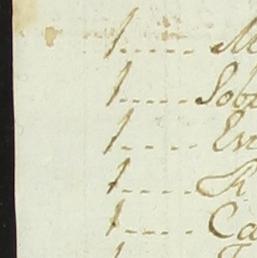 1..... M
1..... Sob
1.... En
1.... R
1.... Ca